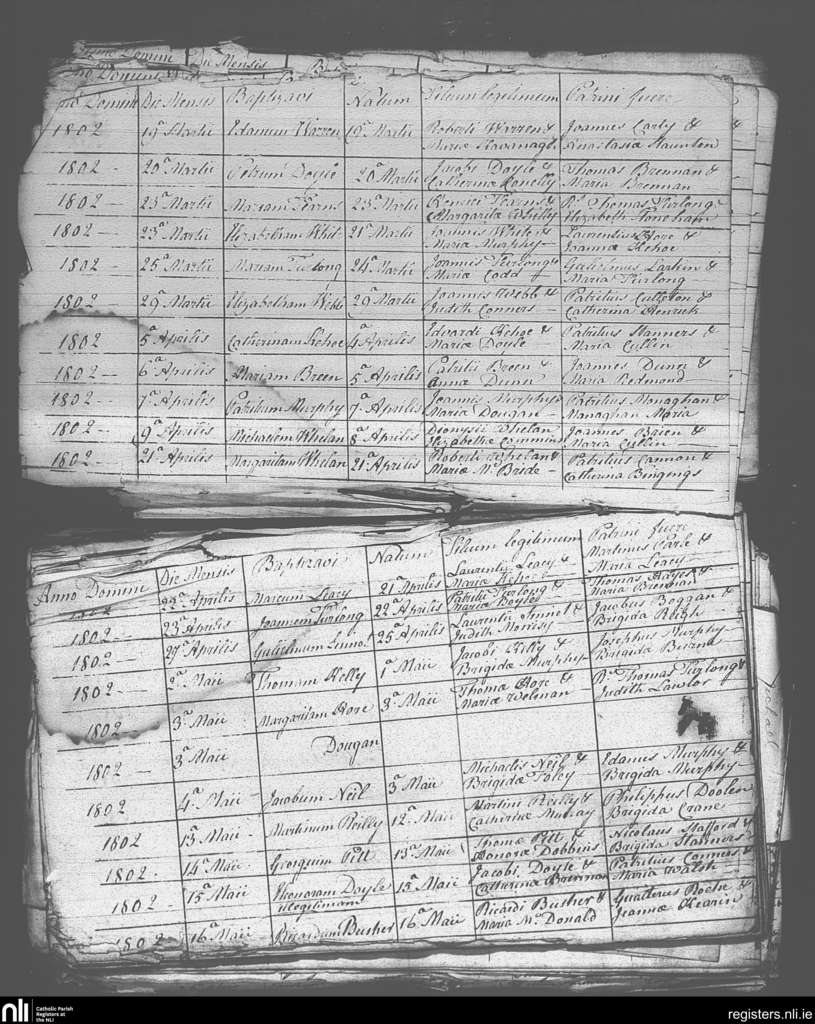 Anno Domini Die Mensis
Anno Domini
Anno Domini Die Mensis Baptizavi Natum Filium legitimum Patrini fuere
1802 19ª Martii Edamum Warren 19ª Martii Roberti Warren &
Mariæ Kavanagh Joannes Carty &
Anastasia Staunton
1802 - 20ª Martii Petrum Doyle 20ª Martii Jacobi Doyle &
Catherinæ Thomas Brennan &
Maria Brennan
1802 - 23ª Martii Mariam Fearns 23ª Martii Fearns &
Margarita Rs Thomas Furlong
Elizabeth
1802 - 23ª Martii Elizabetham Whit 21ª Martii Joannis White &
Maria Murphy Laurentius Hore &
Joanna Kehoe
1802 - 25ª Martii Mariam Furlong 24ª Martii Joannis Furlong &
Maria Codd Gulielmus Larkin &
Maria Furlong
1802 - 29ª Martii Elizabetham Webb 29ª Martii Joannis Webb &
Judith Conners Patritius Cullton &
Catherina
1802 - 5ª Aprilis Catherinam Kehoe 4ª Aprilis Edvardi Kehoe &
Maria Doyle Patritius Stanners &
Maria Cullin
1802 - 6ª Aprilis Mariam Breen 5ª Aprilis Patritii Breen &
Anna Duner Joannes Duner &
Maria Redmond
1802 - 7ª Aprilis Patritium Murphy 7ª Aprilis Joannis Murphy &
Maria Dougan Patritius Monaghan &
Managhan Maria
1802 - 9ª Aprilis Michaelem Whelan 8ª Aprilis Dionysii Whelan
Elizabethæ Commins Joannes &
Maria Cullin
1802 - 21ª Aprilis Margaritam Whelan 21ª Aprilis Roberti Whelan &
Mariæ Mc Bride Patritius Cannon &
Catherina
Anno Domini Die Mensis Baptizavi Natum Filium legitimum Patrini fuere
1802 22ª Aprilis Marcum Leacy 21 Aprilis Laurentii Leacy &
Maria Kehoe Martinus &
Maria Leacy
1802 - 23ª Aprilis Joannem Furlong 22ª Aprilis Patritii Furlong &
Maria Thomas Hayes &
Maria
1802 - 27ª Aprilis Gulielmum Sinnot 25ª Aprilis Laurentii Sinnot &
Judith Jacobus Boggan &
Brigida
1802 - 2ª Maii Thomam Kelly 1ª Maii Jacobi Kelly &
Brigida Murphy Josephus Murphy
Brigida
1802 3ª Maii Margaritam Hore 3ª Maii Thoma Hore &
Maria Rs Thomas Furlong &
Judith Lawlor
1802 - 3ª Maii Dougan
1802 4ª Maii Jacobum Neil 3ª Maii Michaelis Neil &
Brigida Foley Edamus Murphy &
Brigida Murphy
1802 13ª Maii Martinum Reilly 12ª Maii Martini Reilly &
Catherina Philippus Doolen
Brigida Crane
1802 - 14ª Maii Georgium Pitt 13ª Maii Thomæ Pitt &
Honoræ Dobbins Nicolaus Stafford &
Brigida Stanners
1802 - 15ª Maii Honoram Doyle
illegitimam 15ª Maii Jacobi Doyle &
Catherina Brennan Patritius Conners &
Maria Walsh
1802 16ª Maii Ricardum Busher 16ª Maii Ricardi Busher &
Maria Mc Donald Gualterus Roche &
Joanna Kearin
nli
Catholic Parish
Registers at
the NLI
registers.nli.ie